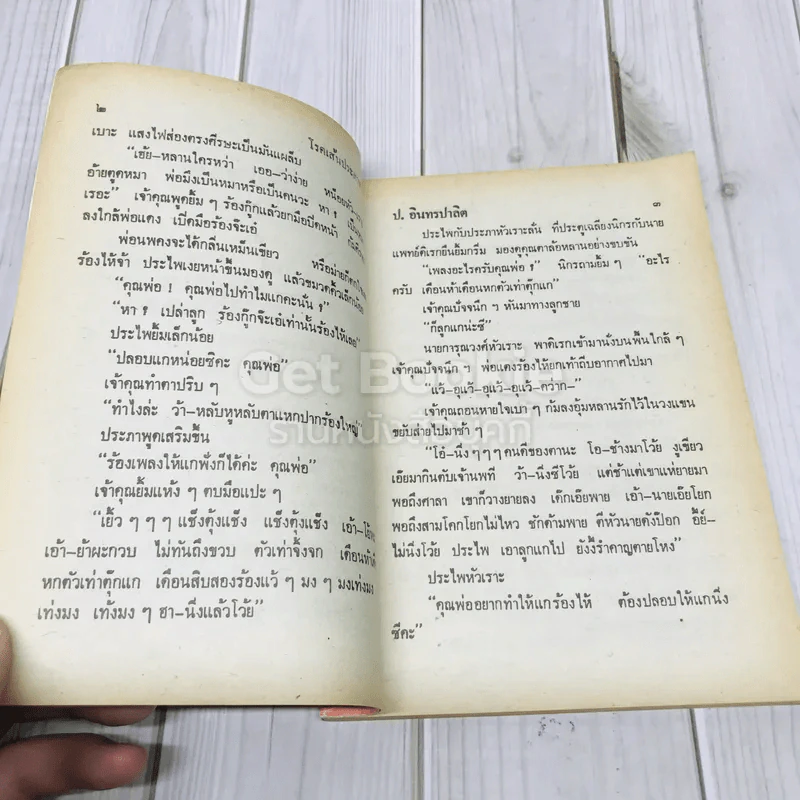 ๒
โรคเส้นประสาท
เบาะ แสงไฟส่องตรงศีรษะเป็นมันแผล็บ
“เฮ้ย–หลานใครหว่า เออ–ว่าง่าย หน่อยหัว
อ้ายตูดหมา พ่อมึงเป็นหมาหรือเป็นคนวะ หา ? เป็น
เรอะ” เจ้าคุณพูดยิ้ม ๆ ร้องกุ๊กแล้วยกมือปิดหน้า ก้ม
ลงใกล้พ่อแดง เปิดมือร้องจ๊ะเอ๋
พ่อนพดงจะได้กลิ่นเหม็นเขียว หรือม่ายก็ตกใจ
ร้องไห้จ้า ประไพเงยหน้าขึ้นมองดู แล้วขมวดคิ้วเล็กน้อย
“คุณพ่อ ! คุณพ่อไปทำไมแกคะนั่น ?”
“หา ? เปล่าลูก ร้องกุ๊กจ๊ะเอ๋เท่านั้นร้องไห้เลย”
ประไพยิ้มเล็กน้อย
“ปลอบแกหน่อยซิคะ คุณพ่อ”
เจ้าคุณทำตาปริบ ๆ
“ทำไงล่ะ ว้า–หลับหูหลับตาแหกปากร้องใหญ่”
ประภาพูดเสริมขึ้น
“ร้องเพลงให้แกฟังก็ได้ค่ะ คุณพ่อ”
เจ้าคุณยิ้มแห้ง ๆ ตบมือแปะ ๆ
“เย้ว ๆ ๆ ๆ แช็งตุ้งแช็ง แช็งตุ้งแช็ง เอ้า–
เอ้า–ย้าผะกวบ ไม่ทันถึงขวบ ตัวเท่าจิ้งจก เดือนห้า
หกตัวเท่าตุ๊กแก เดือนสิบสองร้องแว้ ๆ มง ๆ มงเท่งมง
เท่งมง เท้งมง ๆ ฮา–นิ่งแล้วโว้ย”
ป. อินทรปาลิต
๓
ประไพกับประภาหัวเราะลั่น ที่ประตูเฉลียงนิกรกับนาย
แพทย์ดิเรกยืนยิ้มกริ่ม มองดูคุณตาล้อหลานอย่างขบขัน
“เพลงอะไรครับคุณพ่อ ?” นิกรถามยิ้ม ๆ “อะไร
ครับ เดือนห้าเดือนหกตัวเท่าตุ๊กแก”
เจ้าคุณปัจจนึก ฯ หันมาทางลูกชาย
“ก็ลูกแกน่ะซี”
นายการุณวงศ์หัวเราะ พาดิเรกเข้ามานั่งบนพื้นใกล้ ๆ
เจ้าคุณปัจจนึก ฯ พ่อแดงร้องไห้ยกเท้าถีบอากาศไปมา
“แว้–อุแว้–อุแว้–อุแว้–คว่าก–”
เจ้าคุณถอนหายใจเบา ๆ ก้มลงอุ้มหลานรักไว้ในวงแขน
ขยับส่ายไปมาช้า ๆ
“โอ๋–นิ่ง ๆ ๆ ๆ คนดีของตานะ โอ–ช้างมาโว้ย งูเขียว
เอ๊ยมากินตับเจ้านพที ว้า–นิ่งซีโว้ย แต่ช้าแต่เขาแห่ยายมา
พอถึงศาลา เขาก็วางยายลง เด๊กเอ๊ยพาย เอ้า–นายเอ๊ยโยก
พอถึงสามโคกโยกไม่ไหว ชักด้ามพาย ตีหัวนายดังป๊อก อื๊ย์–
ไม่นิ่งโว้ย ประไพ เอาลูกแกไป ยังงี้รำคาญตายโหง”
ประไพหัวเราะ
“คุณพ่ออยากทำให้แกร้องไห้ ต้องปลอบให้แกนิ่ง
ซีคะ”
Get Books
ร้านหนังสือบุ๊คคก